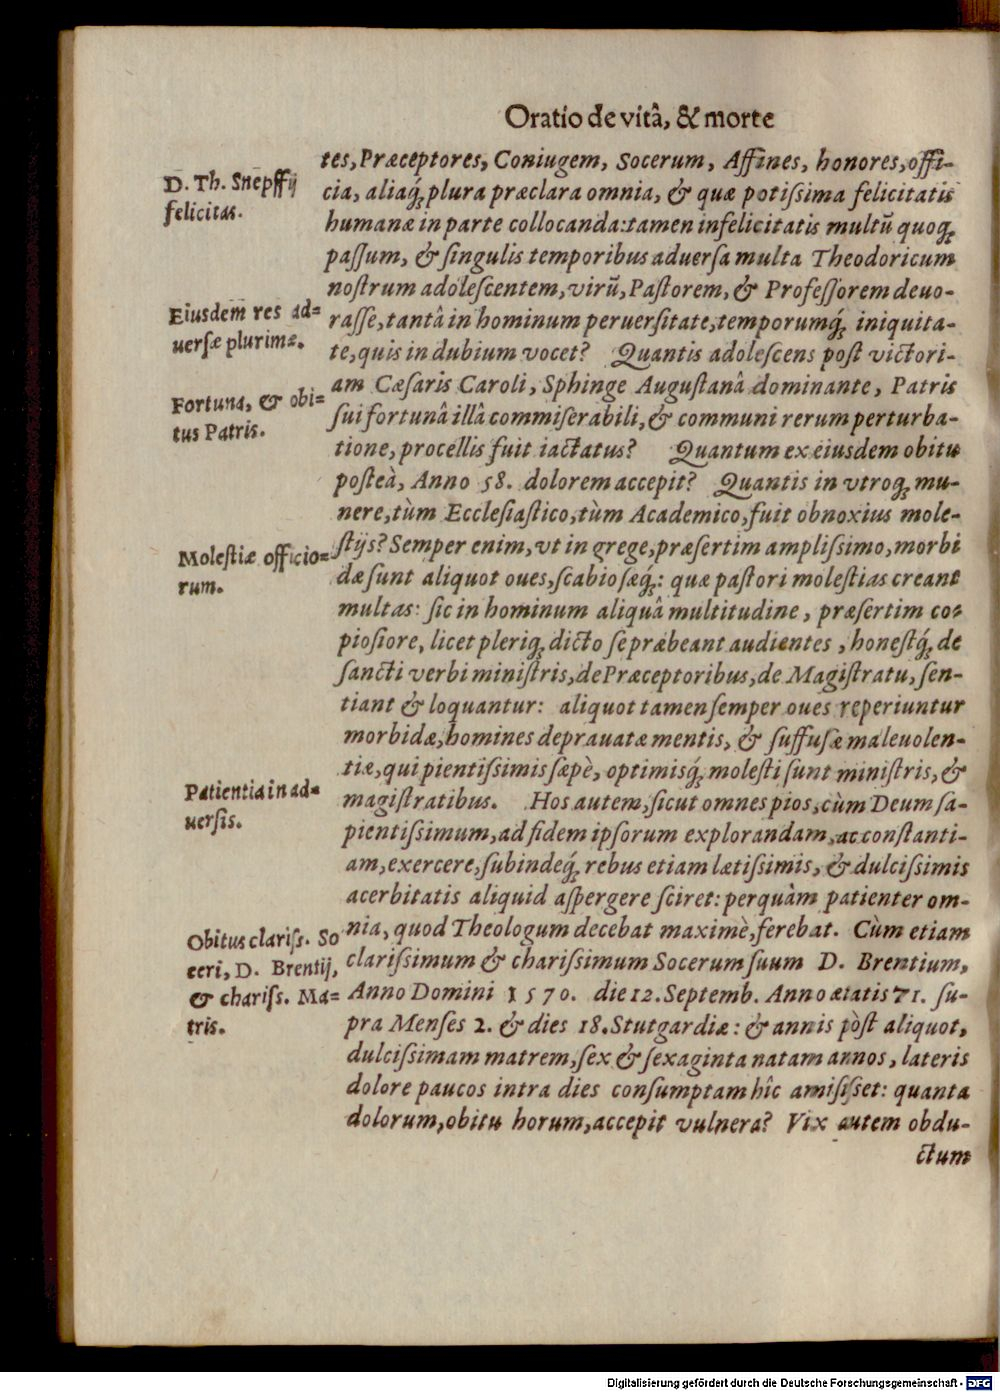 Oratio de vitâ, & morte
D. Th. Snepffij
felicitas.
Eiusdem res ad=
uersæ plurimæ.
Fortuna, & obi=
tus Patris.
Molestiæ officio=
rum.
Patientia in ad=
uersis.
Obitus clariſs. So
ceri, D. Brentij,
& chariſs. Ma=
tris.
tes, Præceptores, Coniugem, Socerum, Affines, honores, offi-
cia, aliaq́; plura præclara omnia, & quæ potiſsima felicitatis
humanæ in parte collocanda: tamen infelicitatis multũ quoq;
paſſum, & ſingulis temporibus aduerſa multa Theodoricum
noſtrum adoleſcentem, virũ, Paſtorem, & Profeſſorem deuo-
raſſe, tantâ in hominum peruerſitate, temporumq́; iniquita-
te, quis in dubium vocet? Quantis adoleſcens poſt victori-
am Cæſaris Caroli, Sphinge Auguſtanâ dominante, Patris
ſui fortunâ illâ commiſerabili, & communi rerum perturba-
tione, procellis fuit iactatus? Quantum ex eiusdem obitu
poſteà, Anno 58. dolorem accepit? Quantis in vtroq; mu-
nere, tùm Eccleſiaſtico, tùm Academico, fuit obnoxius mole-
ſtijs? Semper enim, vt in grege, præſertim ampliſsimo, morbi
dæ ſunt aliquot oues, ſcabioſæq́;: quæ paſtori moleſtias creant
multas: ſic in hominum aliquâ multitudine, præſertim co-
pioſiore, licet pleriq; dicto ſe præbeant audientes, honeſtq́; de
ſancti verbi miniſtris, de Præceptoribus, de Magiſtratu, ſen-
tiant & loquantur: aliquot tamen ſemper oues reperiuntur
morbidæ, homines deprauatæ mentis, & ſuffuſæ maleuolen-
tiæ, qui pientiſsimis ſæpè, optimisq́; moleſti ſunt miniſtris, &
magiſtratibus. Hos autem, ſicut omnes pios, cùm Deum ſa-
pientiſsimum, ad fidem ipſorum explorandam, ac conſtanti-
am, exercere, ſubindeq́; rebus etiam lætiſsimis, & dulciſsimis
acerbitatis aliquid aſpergere ſciret: perquàm patienter om-
nia, quod Theologum decebat maximè, ferebat. Cùm etiam
clariſsimum & chariſsimum Socerum ſuum D. Brentium,
Anno Domini 1570. die 12. Septemb. Anno ætatis 71. ſu-
pra Menſes 2. & dies 18. Stutgardiæ: & annis pòſt aliquot,
dulciſsimam matrem, ſex & ſexaginta natam annos, lateris
dolore paucos intra dies conſumptam hîc amiſiſſet: quanta
dolorum, obitu horum, accepit vulnera? Vix autem obdu-
ctum
Digitalisierung gefördert durch die Deutsche Forschungsgemeinschaft - DFG